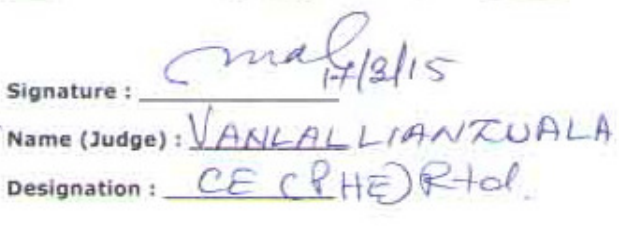 Signature : 17/3/15
Name (Judge) : VANLALLIANZUALA
Designation : CE (PHE) Rtd.